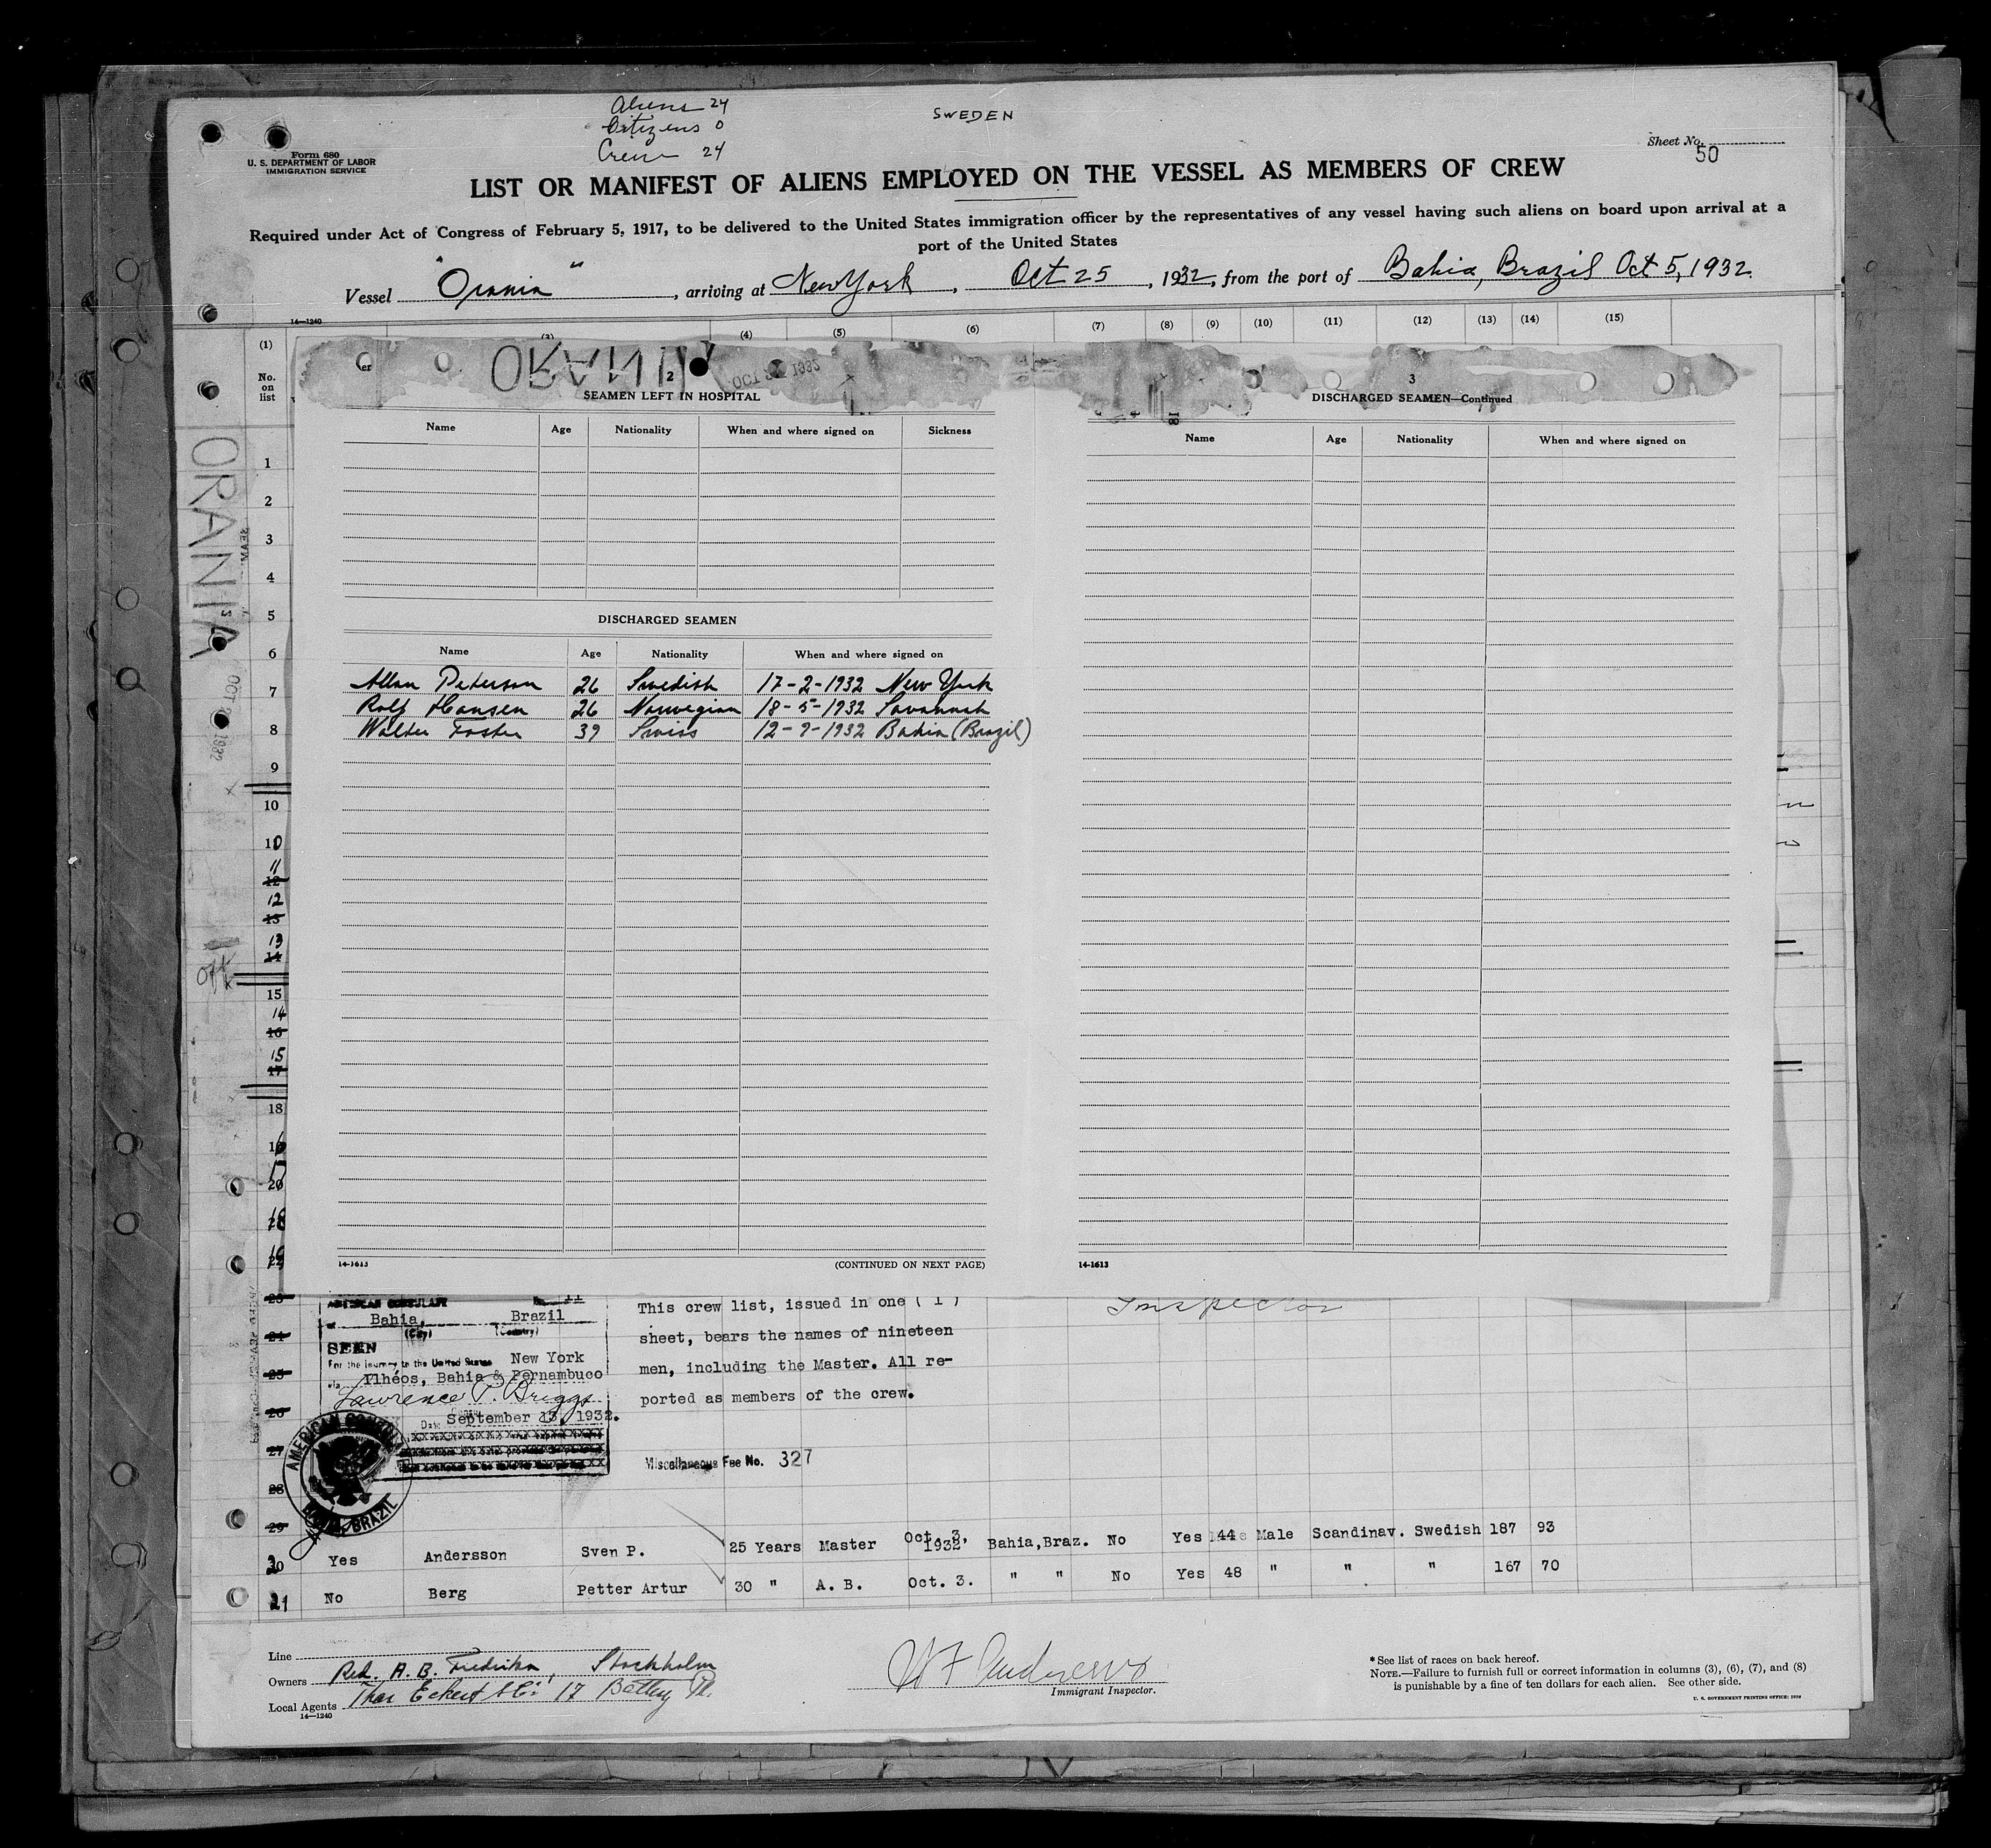 Aliens 24
Citizens 0
Crew 24
SWEDEN
Form 680
U. S. DEPARTMENT OF LABOR
IMMIGRATION SERVICE
Sheet No. 50
LIST OR MANIFEST OF ALIENS EMPLOYED ON THE VESSEL AS MEMBERS OF CREW
Required under Act of Congress of February 5, 1917, to be delivered to the United States immigration officer by the representatives of any vessel having such aliens on board upon arrival at a
port of the United States
Vessel "Orania", arriving at New York, Oct 25, 1932, from the port of Bahia, Brazil Oct 5, 1932.
14—1240
(1) (3) (4) (5) (6) (7) (8) (9) (10) (11) (12) (13) (14) (15)
No. on list
ORANIA
OCT 1932
ORANIA
2
SEAMEN LEFT IN HOSPITAL
Name Age Nationality When and where signed on Sickness
DISCHARGED SEAMEN
Name Age Nationality When and where signed on
Allan Peterson 26 Swedish 17-2-1932 New York
Rolf Hansen 26 Norwegian 18-5-1932 Savannah
Walter Foster 39 Swiss 12-9-1932 Bahia (Brazil)
14-1613 (CONTINUED ON NEXT PAGE)
3
DISCHARGED SEAMEN—Continued
Name Age Nationality When and where signed on
14-1613
1
2
3
4
5
6
7
8
9
10
10
11
12
13
15
14
15
18
off
AMERICAN CONSULATE
Bahia, Brazil
(City) (Country)
SEEN
For the journey to the United States New York
via Ilhéos, Bahia & Pernambuco
Lawrence P. Briggs
Date September 13, 1932.
AMERICAN CONSULATE
BAHIA, BRAZIL
This crew list, issued in one (1)
sheet, bears the names of nineteen
men, including the Master. All re-
ported as members of the crew.
Miscellaneous Fee No. 327
Inspector
20 Yes Andersson Sven P. 25 Years Master Oct. 3, 1932 Bahia, Braz. No Yes 44 Male Scandinav. Swedish 187 93
21 No Berg Petter Artur 30 " A. B. Oct. 3. " " No Yes 48 " " " 167 70
Line
Owners Red. A. B. Fredrika, Stockholm
Local Agents Thor Eckert & Co. 17 Battery Pl.
14—1240
Immigrant Inspector.
* See list of races on back hereof.
NOTE.—Failure to furnish full or correct information in columns (3), (6), (7), and (8)
is punishable by a fine of ten dollars for each alien. See other side.
U. S. GOVERNMENT PRINTING OFFICE: